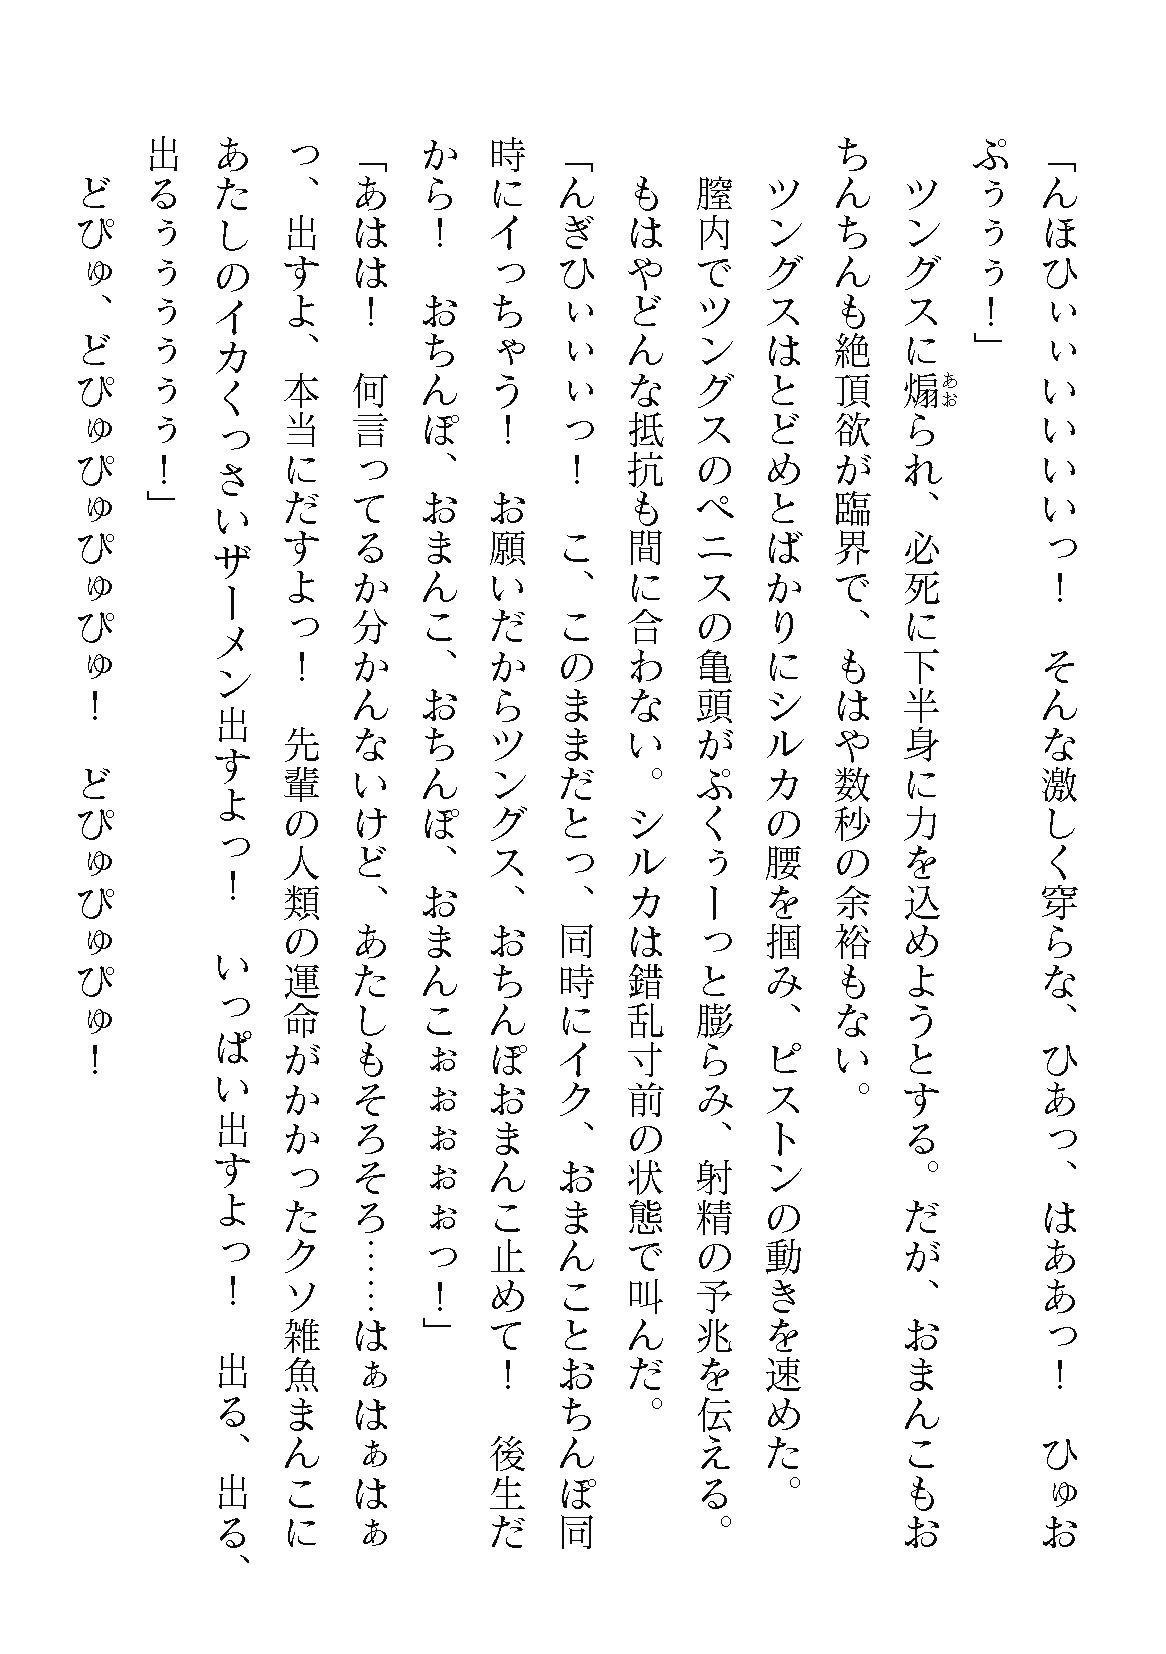 「んほひぃぃいいいいっ！　そんな激しく穿らな、ひあっ、はああっ！　ひゅお
ぷぅぅぅ！」
　ツングスに煽られ、必死に下半身に力を込めようとする。だが、おまんこもお
ちんちんも絶頂欲が臨界で、もはや数秒の余裕もない。
　ツングスはとどめとばかりにシルカの腰を掴み、ピストンの動きを速めた。
　膣内でツングスのペニスの亀頭がぷくぅーっと膨らみ、射精の予兆を伝える。
　もはやどんな抵抗も間に合わない。シルカは錯乱寸前の状態で叫んだ。
「んぎひぃぃぃっ！　こ、このままだとっ、同時にイク、おまんことおちんぽ同
時にイっちゃう！　お願いだからツングス、おちんぽおまんこ止めて！　後生だ
から！　おちんぽ、おまんこ、おちんぽ、おまんこぉぉぉぉぉっ！」
「あはは！　何言ってるか分かんないけど、あたしもそろそろ……はぁはぁはぁ
っ、出すよ、本当にだすよっ！　先輩の人類の運命がかかったクソ雑魚まんこに
あたしのイカくっさいザーメン出すよっ！　いっぱい出すよっ！　出る、出る、
出るぅぅぅぅぅぅ！」
　どぴゅ、どぴゅぴゅぴゅぴゅ！　どぴゅぴゅぴゅ！